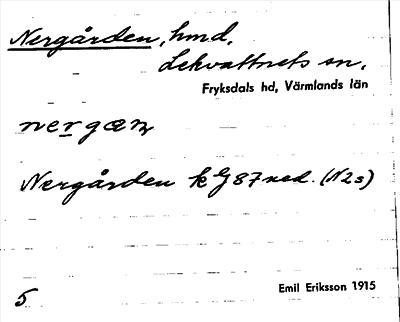 Nergården, hmd.
Lekvattnets sn,
Fryksdals hd, Värmlands län
Nergården k G87 ned. (N2s)
5
Emil Eriksson 1915